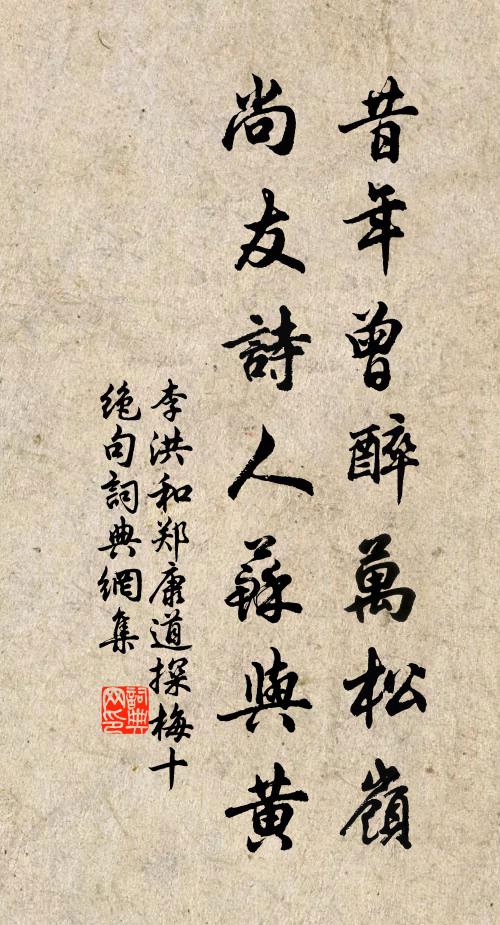 昔年曾醉萬松嶺
尚友詩人蘇與黄
李洪和郑康道探梅十
絶句詞典網集
詞典网印